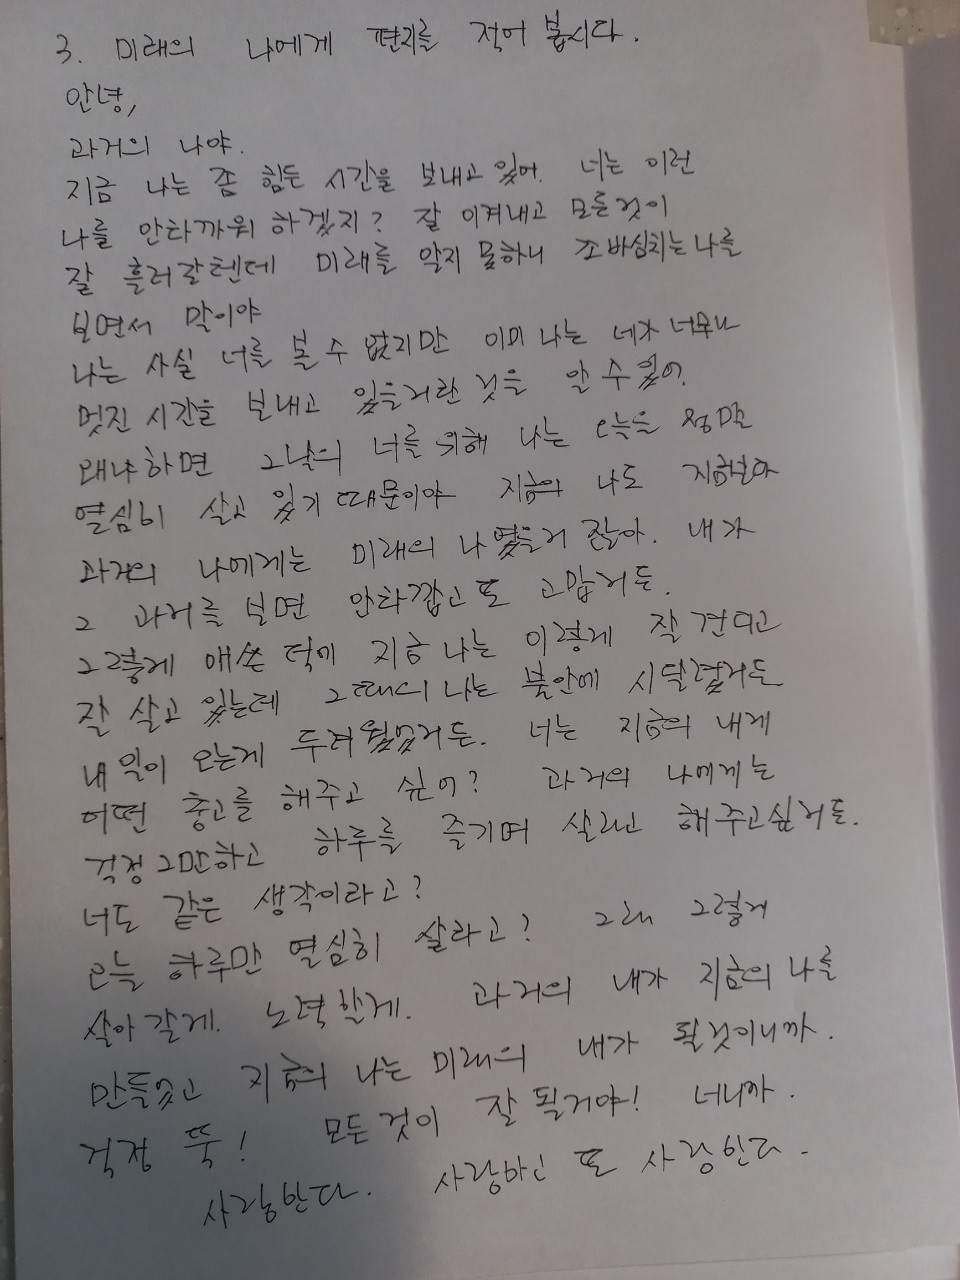 3. 미래의 나에게 편지를 적어 봅시다.
안녕,
과거의 나야.
지금 나는 좀 힘든 시간을 보내고 있어. 너는 이런
나를 안타까워 하겠지? 잘 이겨내고 모든것이
잘 흘러갈텐데 미래를 알지 못하니 조바심치는 나를
보면서 말이야
나는 사실 너를 볼 수 없지만 이미 나는 네가 너무나
멋진 시간을 보내고 있을거란 것을 알 수 있어.
왜냐하면 그날의 너를 위해 나는 오늘을 정말
열심히 살고 있기 때문이야 지금의 나도 지금보다
과거의 나에게는 미래의 나였을거 잖아. 내가
그 과거를 보면 안타깝고 또 고맙거든.
그렇게 애쓴 덕에 지금 나는 이렇게 잘 견디고
잘 살고 있는데 그때의 나는 불안에 시달렸거든
내일이 오는게 두려웠었거든. 너는 지금의 내게
어떤 충고를 해주고 싶어? 과거의 나에게는
걱정 그만하고 하루를 즐기며 살라고 해주고싶거든.
너도 같은 생각이라고?
오늘 하루만 열심히 살라고? 그래 그렇게
살아 갈게. 노력할게. 과거의 내가 지금의 나를
만들었고 지금의 나는 미래의 내가 될것이니까.
걱정 뚝! 모든것이 잘 될거야! 너니까.
사랑한다. 사랑하고 또 사랑한다.